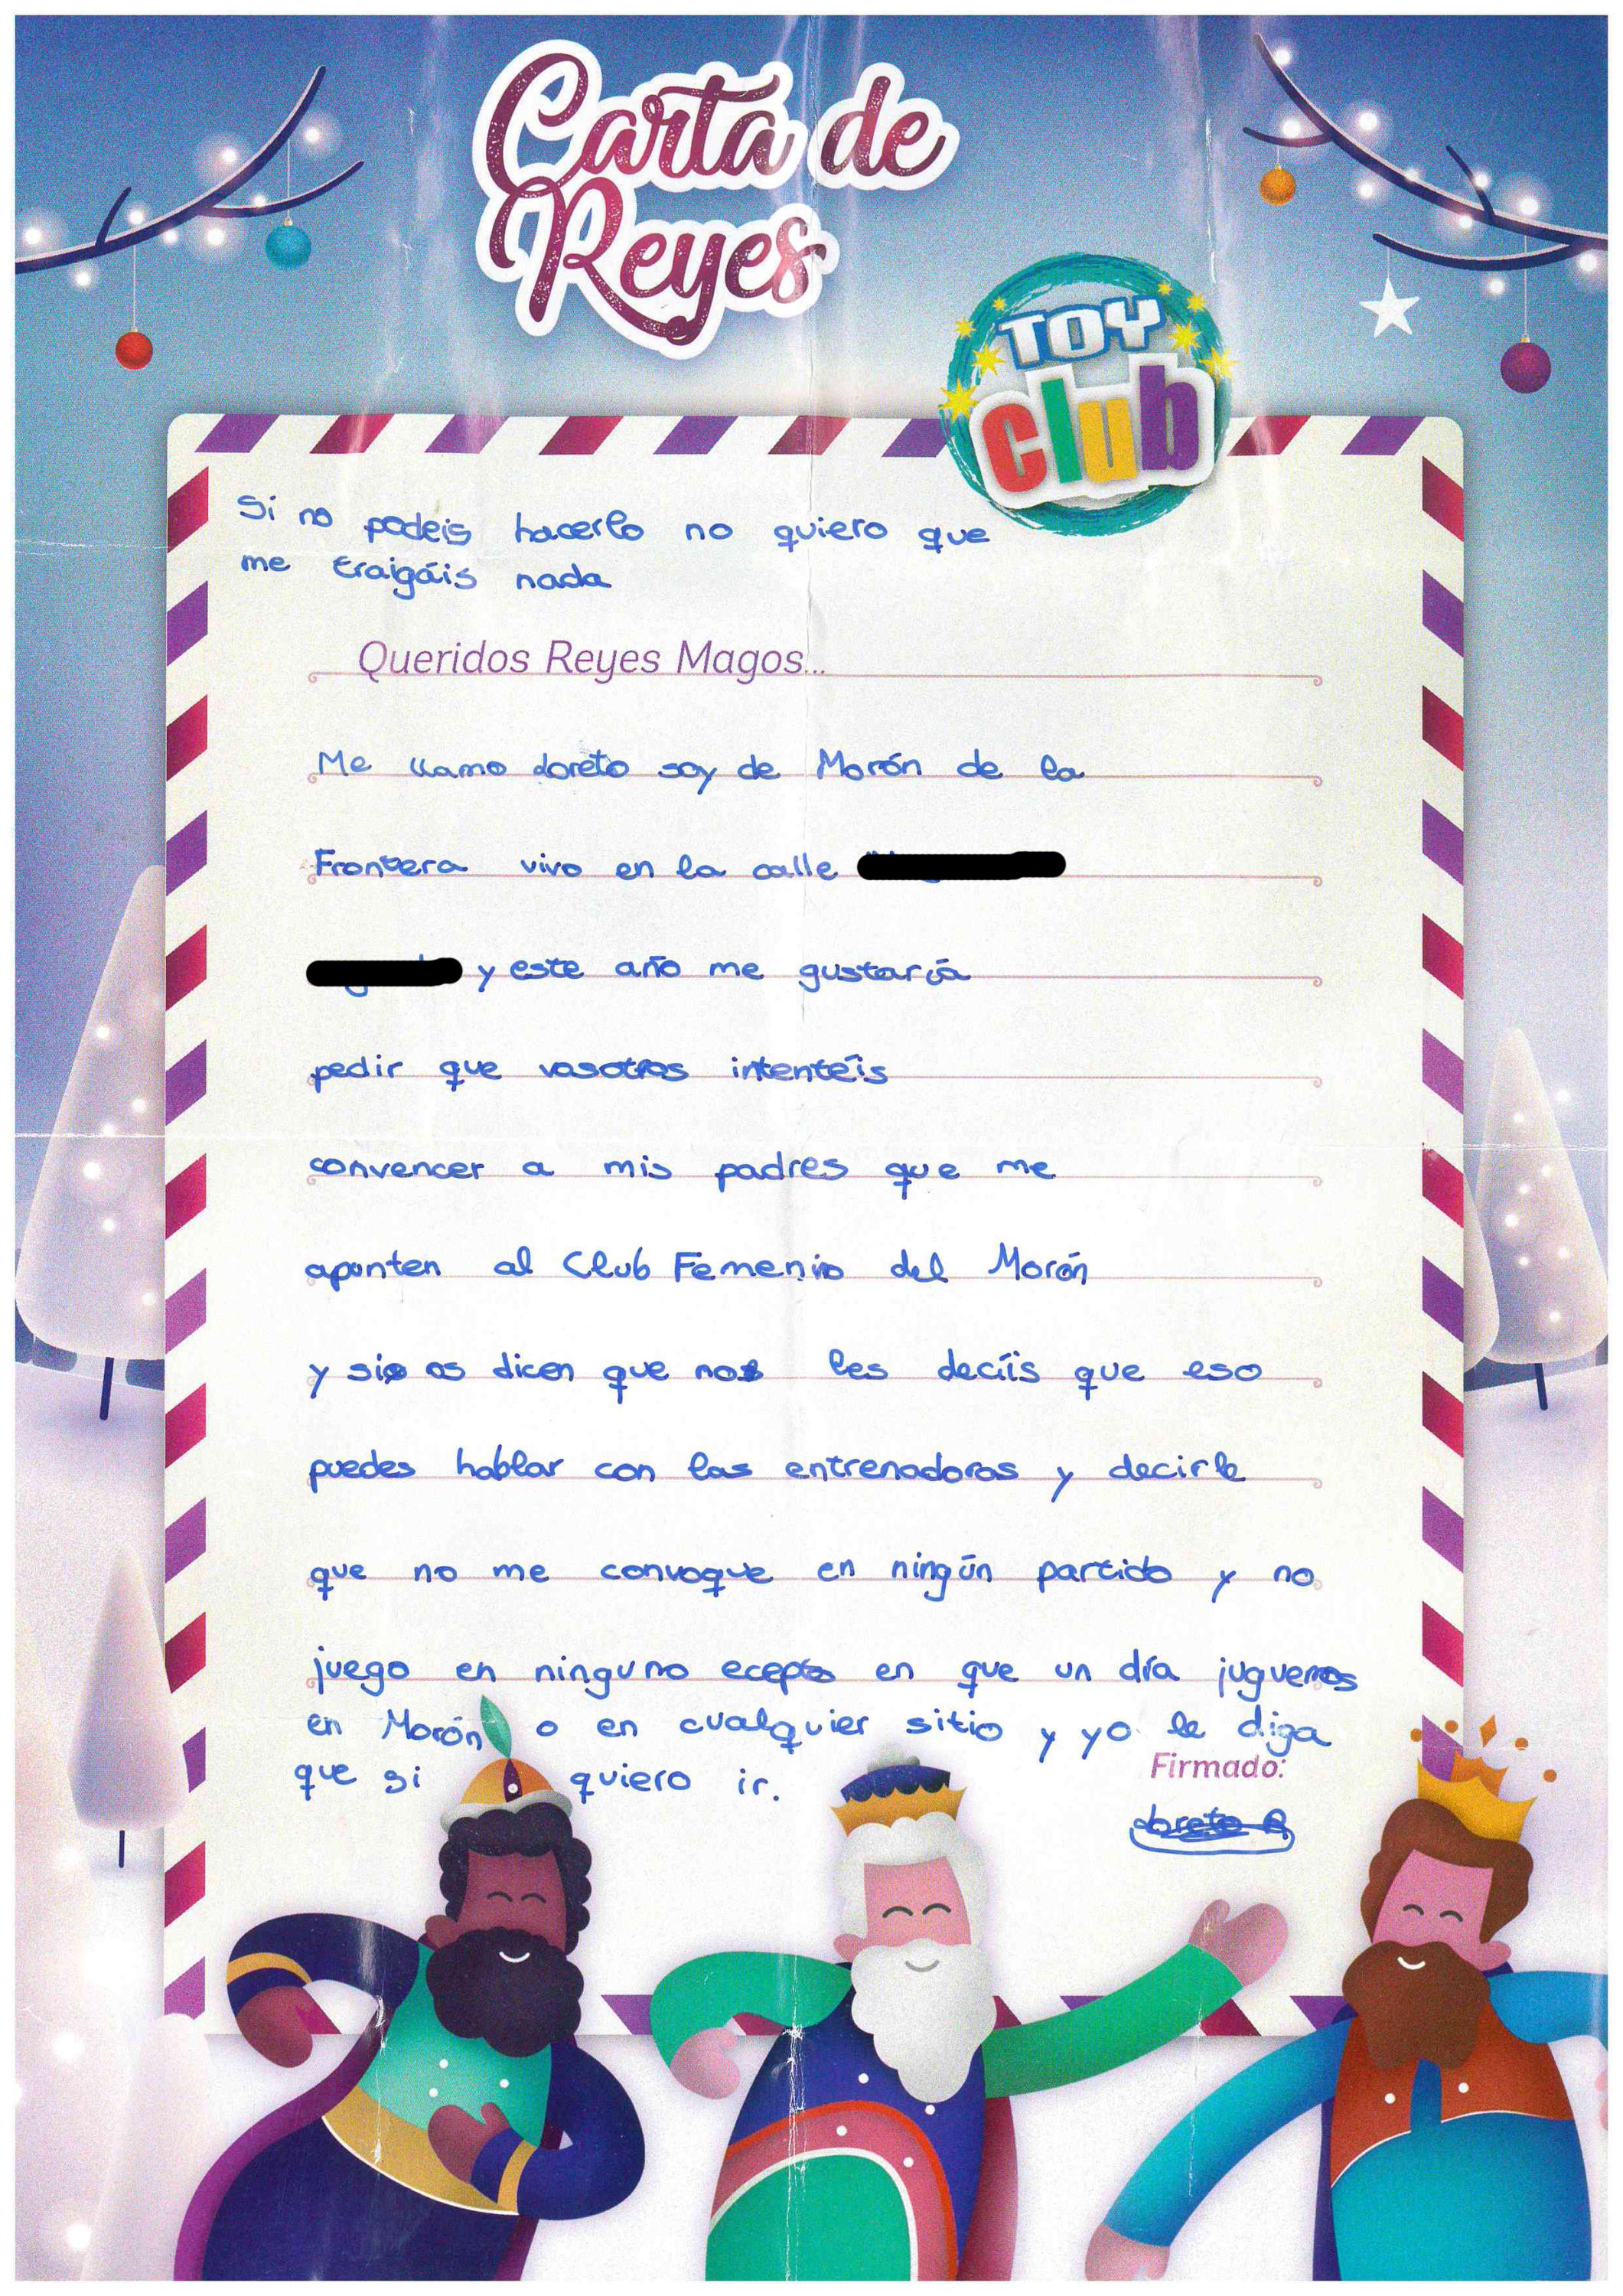 Carta de
Reyes
TOY
club
Si no podeis hacerlo no quiero que
me traigáis nada
Queridos Reyes Magos...
Me llamo Loreto soy de Morón de la
Frontera vivo en la calle
y este año me gustaría
pedir que vosotros intentéis
convencer a mis padres que me
apunten al Club Femenino del Morón
y si os dicen que no les decíis que eso
puedes hablar con las entrenadoras y decirle
que no me convoque en ningún partido y no
juego en ninguno ecepto en que un día juguemos
en Morón o en cualquier sitio y yo le diga
que si quiero ir.
Firmado:
Loreto